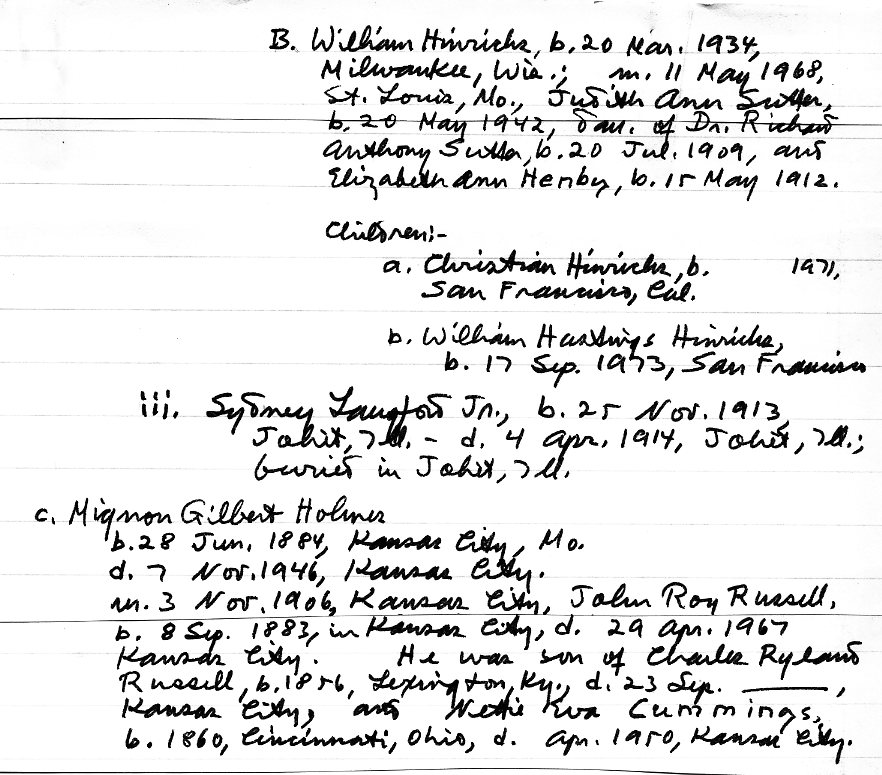 B. William Hinrichs, b. 20 Mar. 1934,
Milwaukee, Wis.; m. 11 May 1968,
St. Louis, Mo., Judith Ann Sutter,
b. 20 May 1942, dau. of Dr. Richard
Anthony Sutter, b. 20 Jul. 1909, and
Elizabeth Ann Henby, b. 15 May 1912.
Children:-
a. Christian Hinrichs, b. 1971,
San Francisco, Cal.
b. William Hastings Hinrichs,
b. 17 Sep. 1973, San Francisco
iii. Sydney Langford Jr., b. 25 Nov. 1913,
Joliet, Ill. - d. 4 Apr. 1914, Joliet, Ill.;
buried in Joliet, Ill.
c. Mignon Gilbert Holmes
b. 28 Jun. 1884, Kansas City, Mo.
d. 7 Nov. 1946, Kansas City.
m. 3 Nov. 1906, Kansas City, John Roy Russell,
b. 8 Sep. 1883, in Kansas City, d. 29 Apr. 1967
Kansas City. He was son of Charles Ryland
Russell, b. 1856, Lexington, Ky., d. 23 Sep. ______,
Kansas City, and Nettie Eva Cummings,
b. 1860, Cincinnati, Ohio, d. Apr. 1950, Kansas City.